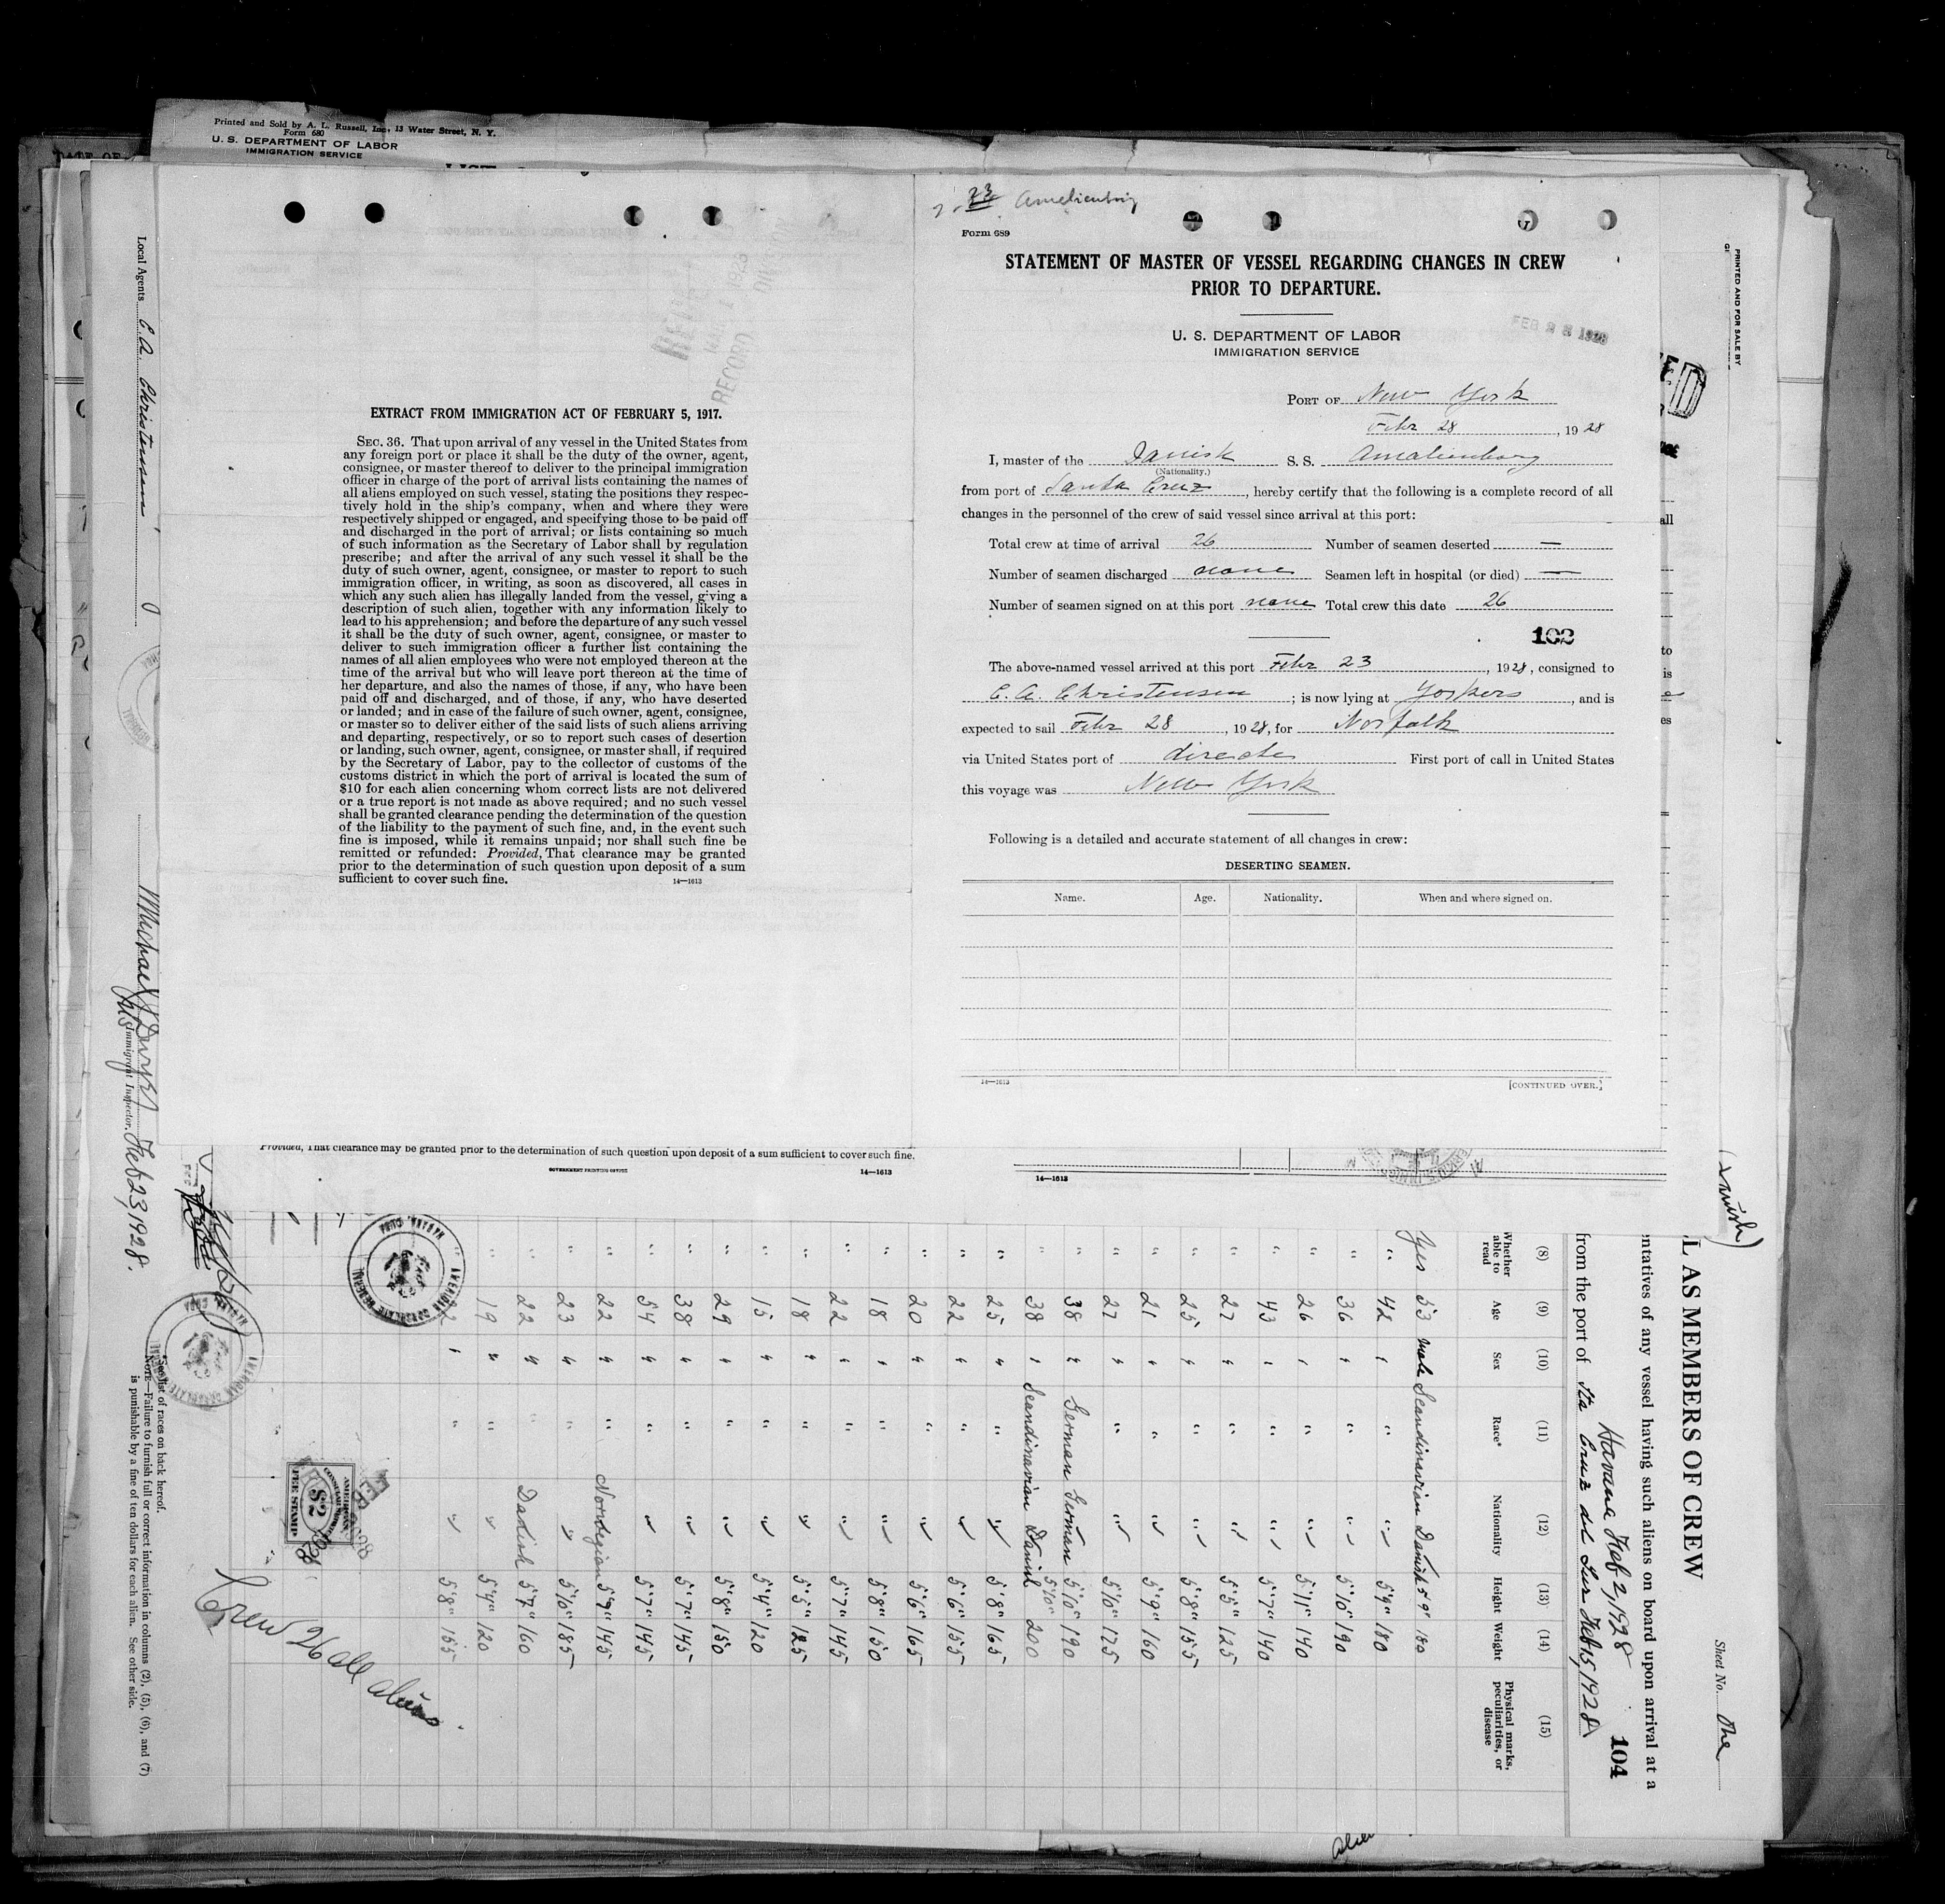 Printed and Sold by A. L. Russell, Inc., 13 Water Street, N. Y.
Form 680
U. S. DEPARTMENT OF LABOR
IMMIGRATION SERVICE
EXTRACT FROM IMMIGRATION ACT OF FEBRUARY 5, 1917.
SEC. 36. That upon arrival of any vessel in the United States from
any foreign port or place it shall be the duty of the owner, agent,
consignee, or master thereof to deliver to the principal immigration
officer in charge of the port of arrival lists containing the names of
all aliens employed on such vessel, stating the positions they respec-
tively hold in the ship's company, when and where they were
respectively shipped or engaged, and specifying those to be paid off
and discharged in the port of arrival; or lists containing so much
of such information as the Secretary of Labor shall by regulation
prescribe; and after the arrival of any such vessel it shall be the
duty of such owner, agent, consignee, or master to report to such
immigration officer, in writing, as soon as discovered, all cases in
which any such alien has illegally landed from the vessel, giving a
description of such alien, together with any information likely to
lead to his apprehension; and before the departure of any such vessel
it shall be the duty of such owner, agent, consignee, or master to
deliver to such immigration officer a further list containing the
names of all alien employees who were not employed thereon at the
time of the arrival but who will leave port thereon at the time of
her departure, and also the names of those, if any, who have been
paid off and discharged, and of those, if any, who have deserted
or landed; and in case of the failure of such owner, agent, consignee,
or master so to deliver either of the said lists of such aliens arriving
and departing, respectively, or so to report such cases of desertion
or landing, such owner, agent, consignee, or master shall, if required
by the Secretary of Labor, pay to the collector of customs of the
customs district in which the port of arrival is located the sum of
$10 for each alien concerning whom correct lists are not delivered
or a true report is not made as above required; and no such vessel
shall be granted clearance pending the determination of the question
of the liability to the payment of such fine, and, in the event such
fine is imposed, while it remains unpaid; nor shall such fine be
remitted or refunded: Provided, That clearance may be granted
prior to the determination of such question upon deposit of a sum
sufficient to cover such fine.
14—1613
23 Amalienborg
Form 689
STATEMENT OF MASTER OF VESSEL REGARDING CHANGES IN CREW
PRIOR TO DEPARTURE.
U. S. DEPARTMENT OF LABOR
IMMIGRATION SERVICE
PORT OF New York
Febr 28, 1928
I, master of the Danish S. S. Amalienborg
(Nationality.)
from port of Santa Cruz, hereby certify that the following is a complete record of all
changes in the personnel of the crew of said vessel since arrival at this port:
Total crew at time of arrival 26 Number of seamen deserted —
Number of seamen discharged none Seamen left in hospital (or died) —
Number of seamen signed on at this port none Total crew this date 26
102
The above-named vessel arrived at this port Febr 23, 1928, consigned to
C. A. Christensen; is now lying at Yonkers, and is
expected to sail Febr 28, 1928, for Norfolk
via United States port of directe First port of call in United States
this voyage was New York
Following is a detailed and accurate statement of all changes in crew:
DESERTING SEAMEN.
Name. Age. Nationality. When and where signed on.
14—1613 [CONTINUED OVER.]
Provided, That clearance may be granted prior to the determination of such question upon deposit of a sum sufficient to cover such fine.
GOVERNMENT PRINTING OFFICE 14—1613
14—1613
PRINTED AND FOR SALE BY
Local Agents C. A. Christensen
Immigrant Inspector. Feb 23, 1928.
Sheet No. One
L AS MEMBERS OF CREW
entatives of any vessel having such aliens on board upon arrival at a
Havana Feb 2, 1928 104
from the port of Sta Cruz del Sur Feb 15, 1928
(8) (9) (10) (11) (12) (13) (14) (15)
Whether able to read Age Sex Race* Nationality Height Weight Physical marks, peculiarities, or disease
Yes 53 male Scandinavian Danish 5'9" 180
" 42 " " " 5'9" 180
" 36 " " " 5'10" 190
" 26 " " " 5'11" 140
" 43 " " " 5'7" 140
" 27 " " " 5'5" 125
" 25 " " " 5'8" 155
" 21 " " " 5'9" 160
" 27 " " " 5'10" 175
" 38 " German German 5'10" 190
" 38 " Scandinavian Danish 5'10" 200
" 25 " " " 5'8" 165
" 22 " " " 5'6" 155
" 20 " " " 5'6" 165
" 18 " " " 5'8" 150
" 22 " " " 5'7" 145
" 18 " " " 5'5" 125
" 15 " " " 5'4" 120
" 29 " " " 5'8" 150
" 38 " " " 5'7" 145
" 54 " " " 5'7" 145
" 22 " " Norvegian 5'9" 145
" 23 " " " 5'10" 185
" 22 " " Danish 5'7" 160
" 19 " " " 5'4" 120
" " " " 5'8" 155
AMERICAN CONSULAR SERVICE
$2
FEE STAMP
Crew 26 all aliens
*See list of races on back hereof.
NOTE—Failure to furnish full or correct information in columns (2), (5), (6), and (7)
is punishable by a fine of ten dollars for each alien. See other side.